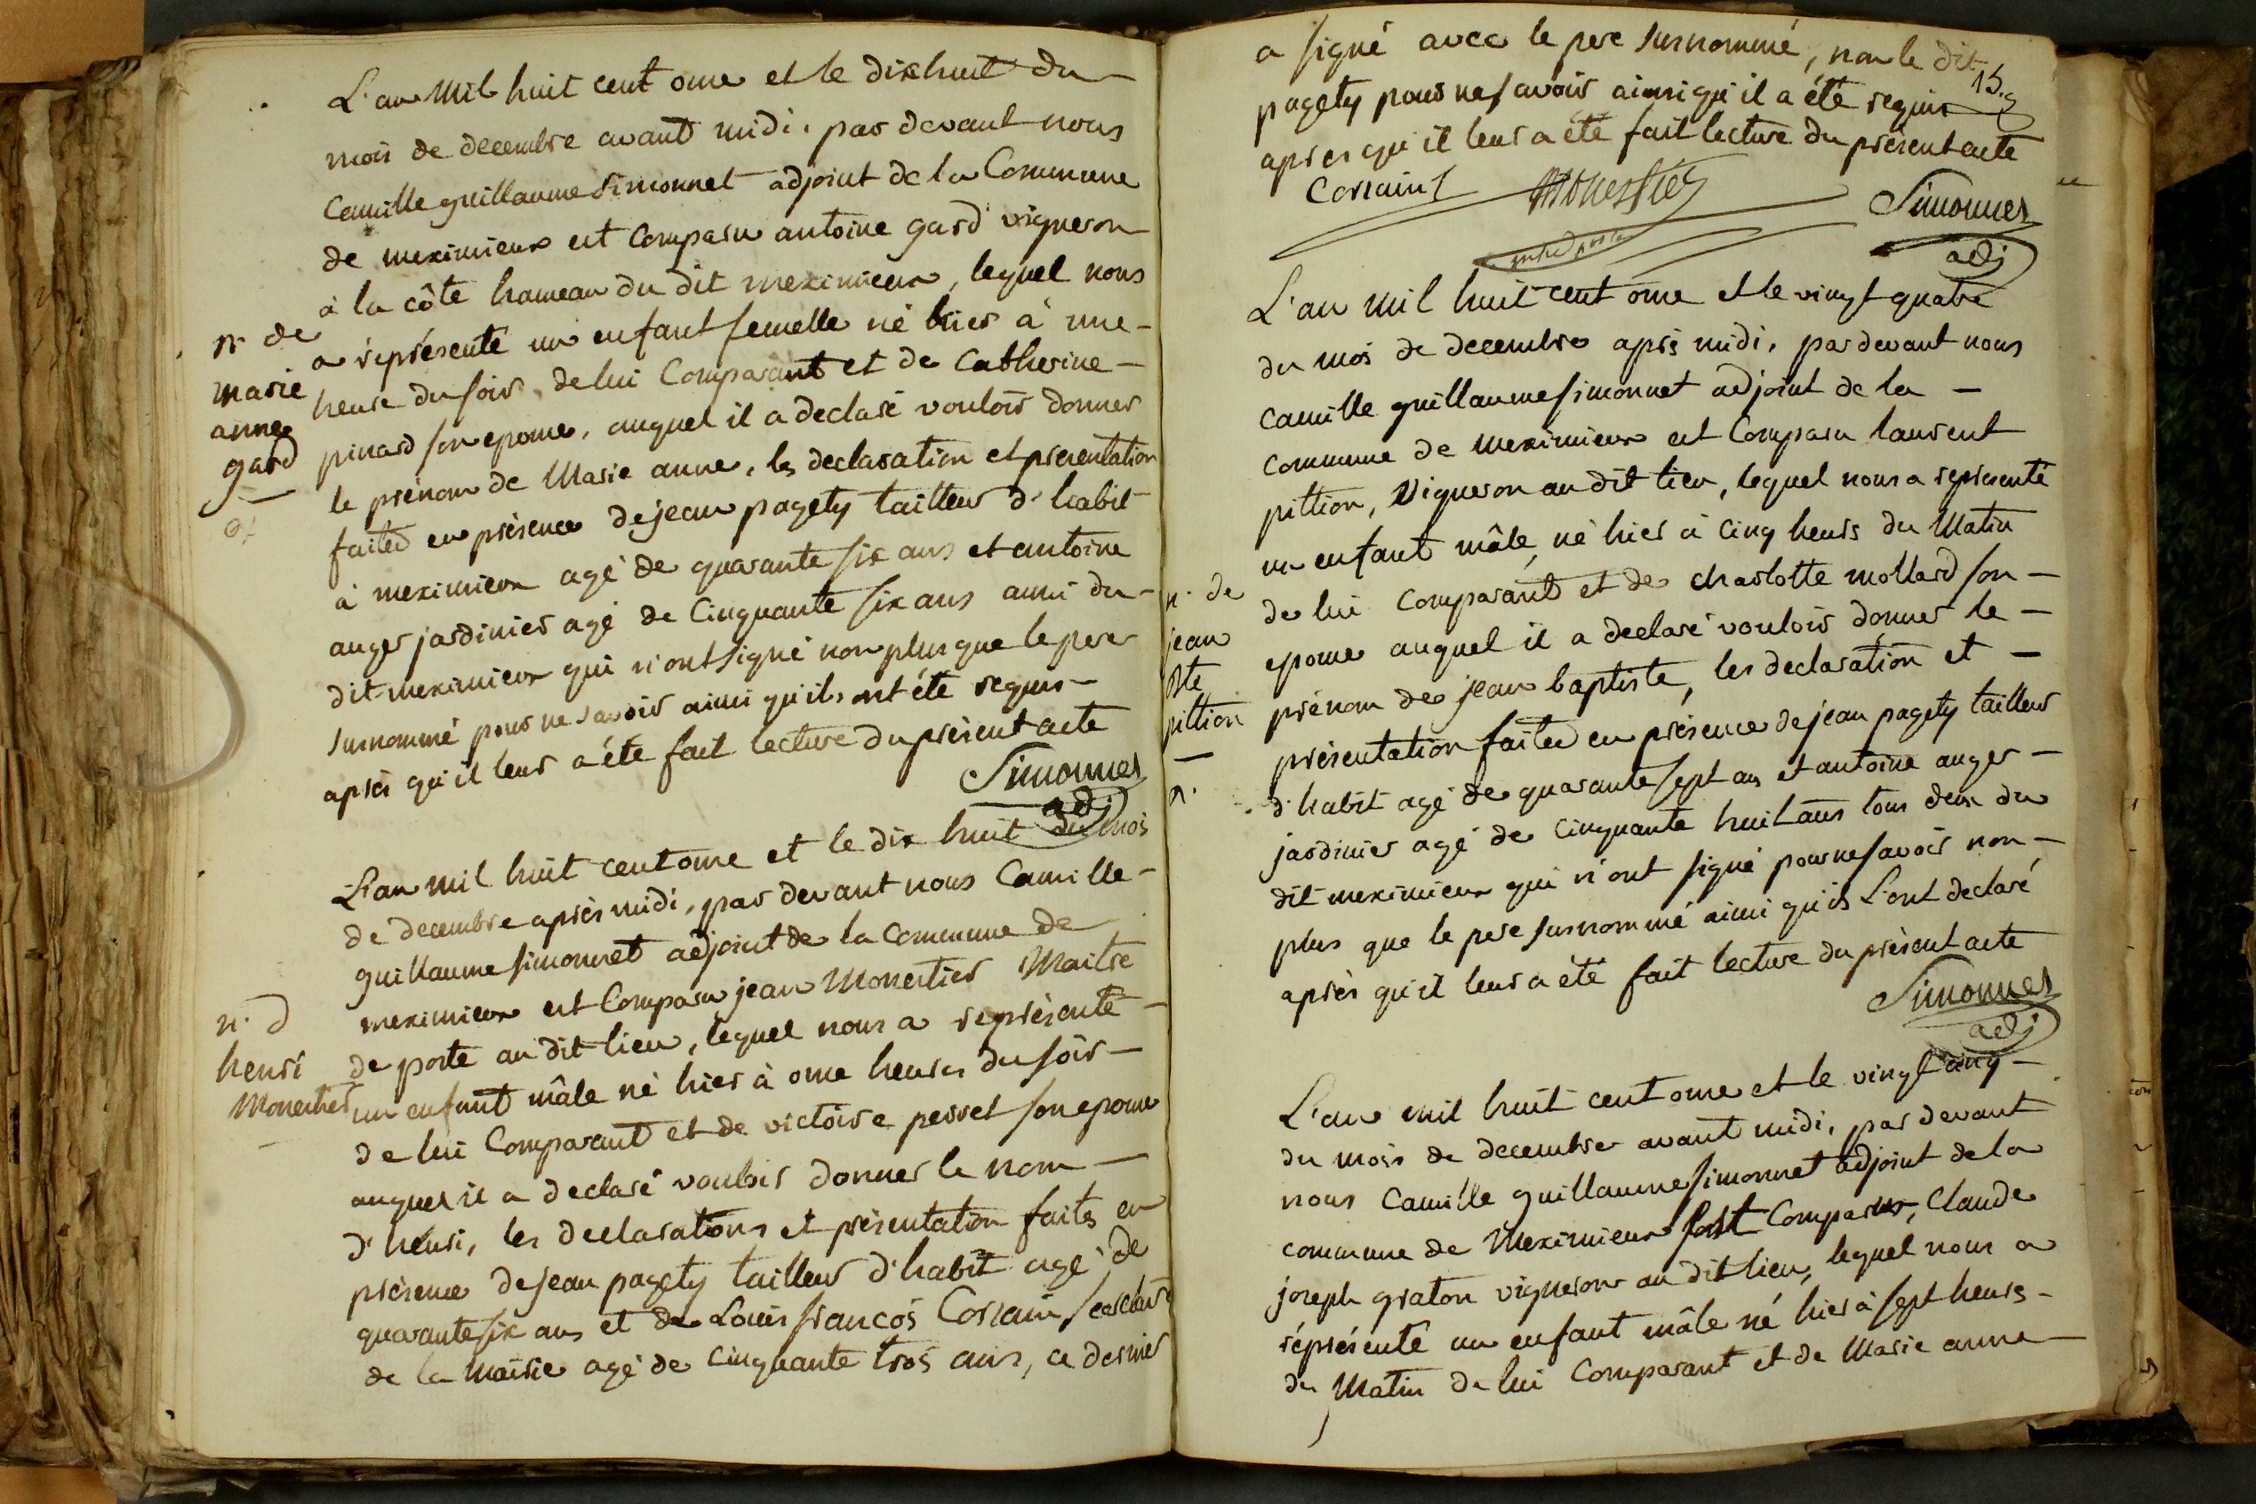 L'an mil huit cent onze et le dixhuit du
mois de decembre avant midi. par devant nous
Camille guillaume Simonnet adjoint de la Commune
de meximieux est comparu antoine gard vigneron
à la côte hameau du dit meximieux, lequel nous
a représenté un enfant femelle né hier à une
heure du soir de lui Comparant et de Catherine
pinard son epouse, auquel il a declaré vouloir donner
le prénom de Marie anne, les declaration et presentation
faites en présence de jean pagety tailleur d'habit
à meximieux agé de quarante six ans et antoine
anger jardinier agé de Cinquante six ans aussi du
dit meximieux qui n'ont signé non plus que le pere
surnommé pour ne savoir ainsi qu'ils ont été requis
après qu'il leur a été fait lecture du présent acte
Simonnet
adj
n. de
marie
anne
gard
L'an mil huit cent onze et le dix huit du mois
de decembre après midi, par devant nous Camille
guillaume simonnet adjoint de la commune de
meximieux est Comparu jean Monestier Maitre
de poste au dit lieu, lequel nous a représenté
un enfant mâle né hier à onze heures du soir
de lui Comparant et de victoire perret son epouse
auquel il a declaré vouloir donner le nom
d'henri, les declarations et présentation faites en
présence de jean pagety tailleur d'habit agé de
quarante six ans et de Louis françois Corrain secretaire
de la mairie agé de cinquante trois ans, ce dernier
n. d
henri
Monestier
15.
a signé avec le pere surnommé, non le dit
pagety pour ne savoir ainsi qu'il a été requis
apres qu'il leur a été fait lecture du présent acte
Corrain
Monestier
Simonnet
adj
L'an mil huit cent onze et le vingt quatre
du mois de decembre après midi, par devant nous
Camille guillaume simonnet adjoint de la
commune de meximieux est Comparu laurent
pittion, vigneron au dit lieu, lequel nous a representé
un enfant mâle, né hier à cinq heurs du Matin
de lui comparant et de charlotte mollard son
epouse auquel il a declaré vouloir donner le
prénom de jean baptiste, les declaration et
présentation faites en présence de jean pagety tailleur
d'habit agé de quarante sept ans et antoine anger
jardinier agé de cinquante huit ans tous deux du
dit meximieux qui n'ont signé pour ne savoir non
plus que le pere surnommé ainsi qu'ils L'ont declaré
après qu'il leur a été fait lecture du présent acte
Simonnet
adj
n. de
jean
Bte
pittion
L'an mil huit cent onze et le vingt cinq
du mois de decembre avant midi, par devant
nous Camille guillaume simonnet adjoint de la
commune de Meximieux est Comparu, Claude
joseph graton vigneron au dit lieu, lequel nous a
réprésenté un enfant mâle né hier à sept heurs
du Matin de lui Comparant et de Marie anne